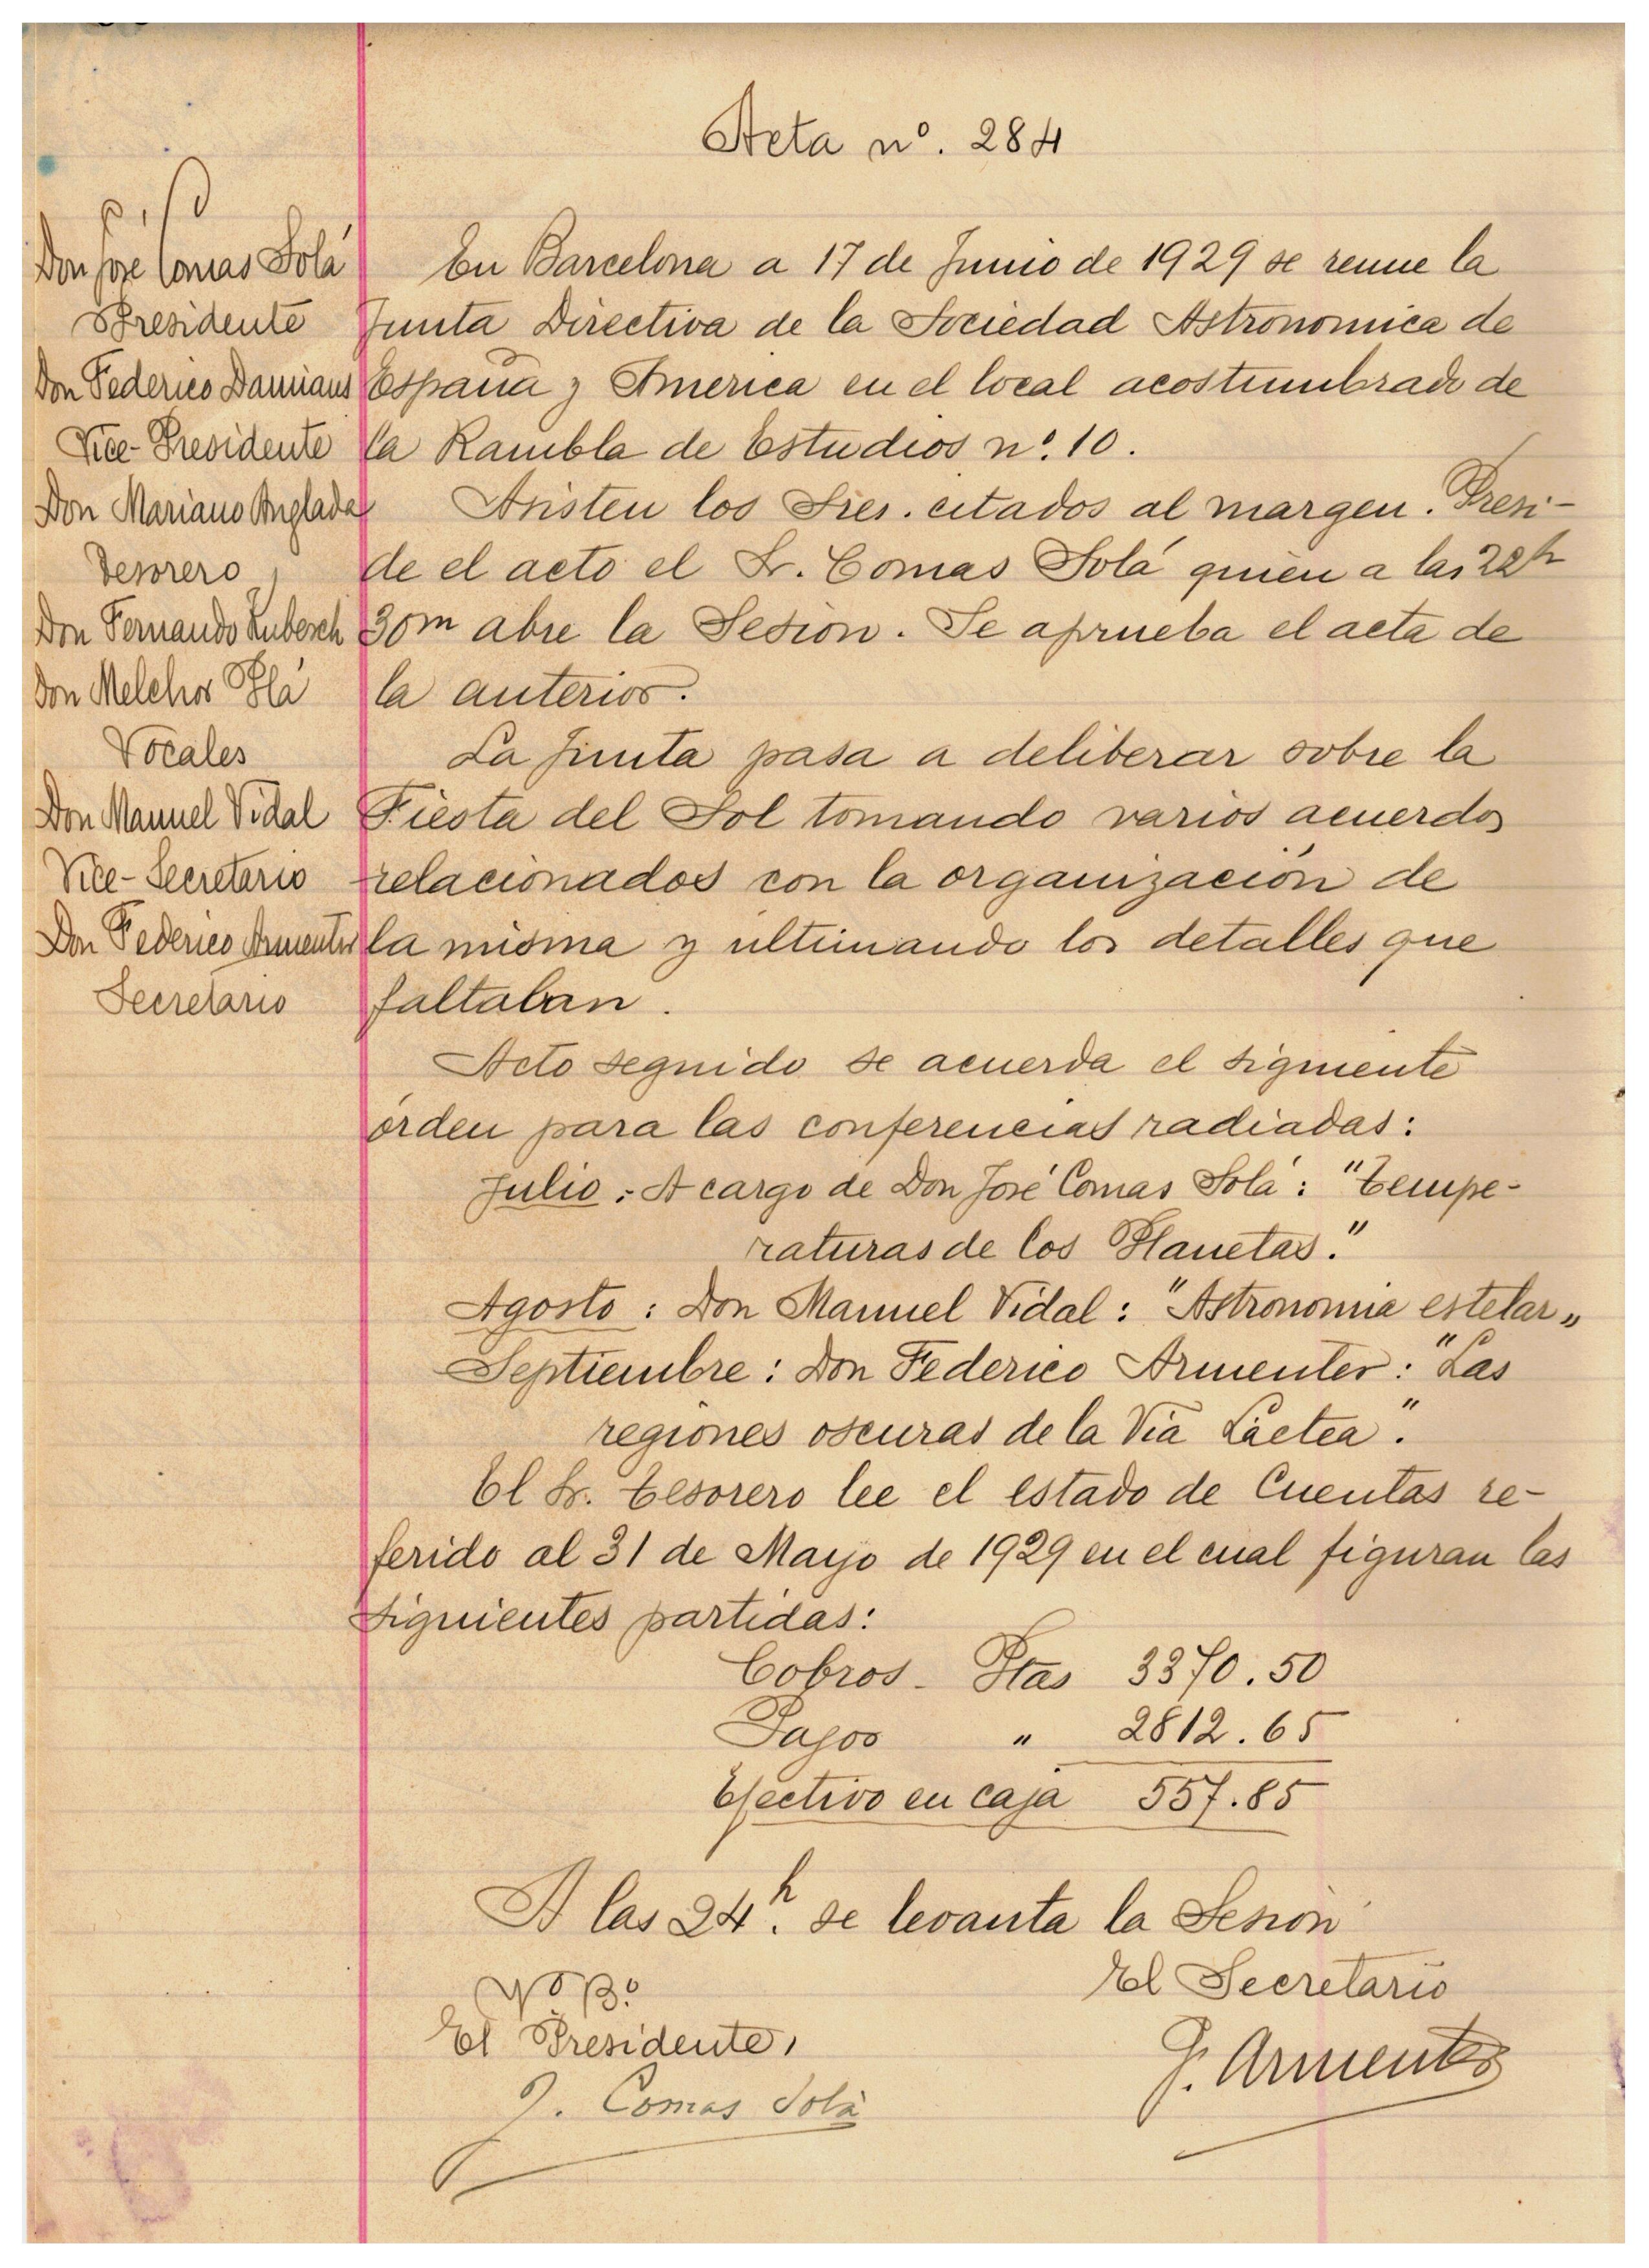 Acta nº. 284
Don Jose Comas Solá
Presidente
Don Federico Damians
Vice-Presidente
Don Mariano Anglada
Tesorero
Don Fernando Rubesch
Don Melchor Plá
Vocales
Don Manuel Vidal
Vice-Secretario
Don Federico Armenter
Secretario
En Barcelona a 17 de Junio de 1929 se reune la
Junta Directiva de la Sociedad Astronomica de
España y America en el local acostumbrado de
la Rambla de Estudios nº. 10.
Asisten los Sres. citados al margen. Presi-
de el acto el Sr. Comas Solá quien a las 22h
30m abre la Sesion. Se aprueba el acta de
la anterior.
La Junta pasa a deliberar sobre la
Fiesta del Sol tomando varios acuerdos
relacionados con la organización de
la misma y ultimando los detalles que
faltaban.
Acto seguido se acuerda el siguiente
orden para las conferencias radiadas:
Julio: A cargo de Don José Comas Solá: "Tempe-
raturas de los Planetas."
Agosto: Don Manuel Vidal: "Astronomia estelar"
Septiembre: Don Federico Armenter: "Las
regiones oscuras de la Via Láctea".
El Sr. Tesorero lee el estado de Cuentas re-
ferido al 31 de Mayo de 1929 en el cual figuran las
siguientes partidas:
Cobros - Ptas 3370.50
Pagos " 2812.65
Efectivo en caja 557.85
A las 24h. se levanta la Sesion
El Secretario
F. Armenter
Vº Bº
El Presidente,
J. Comas Solà